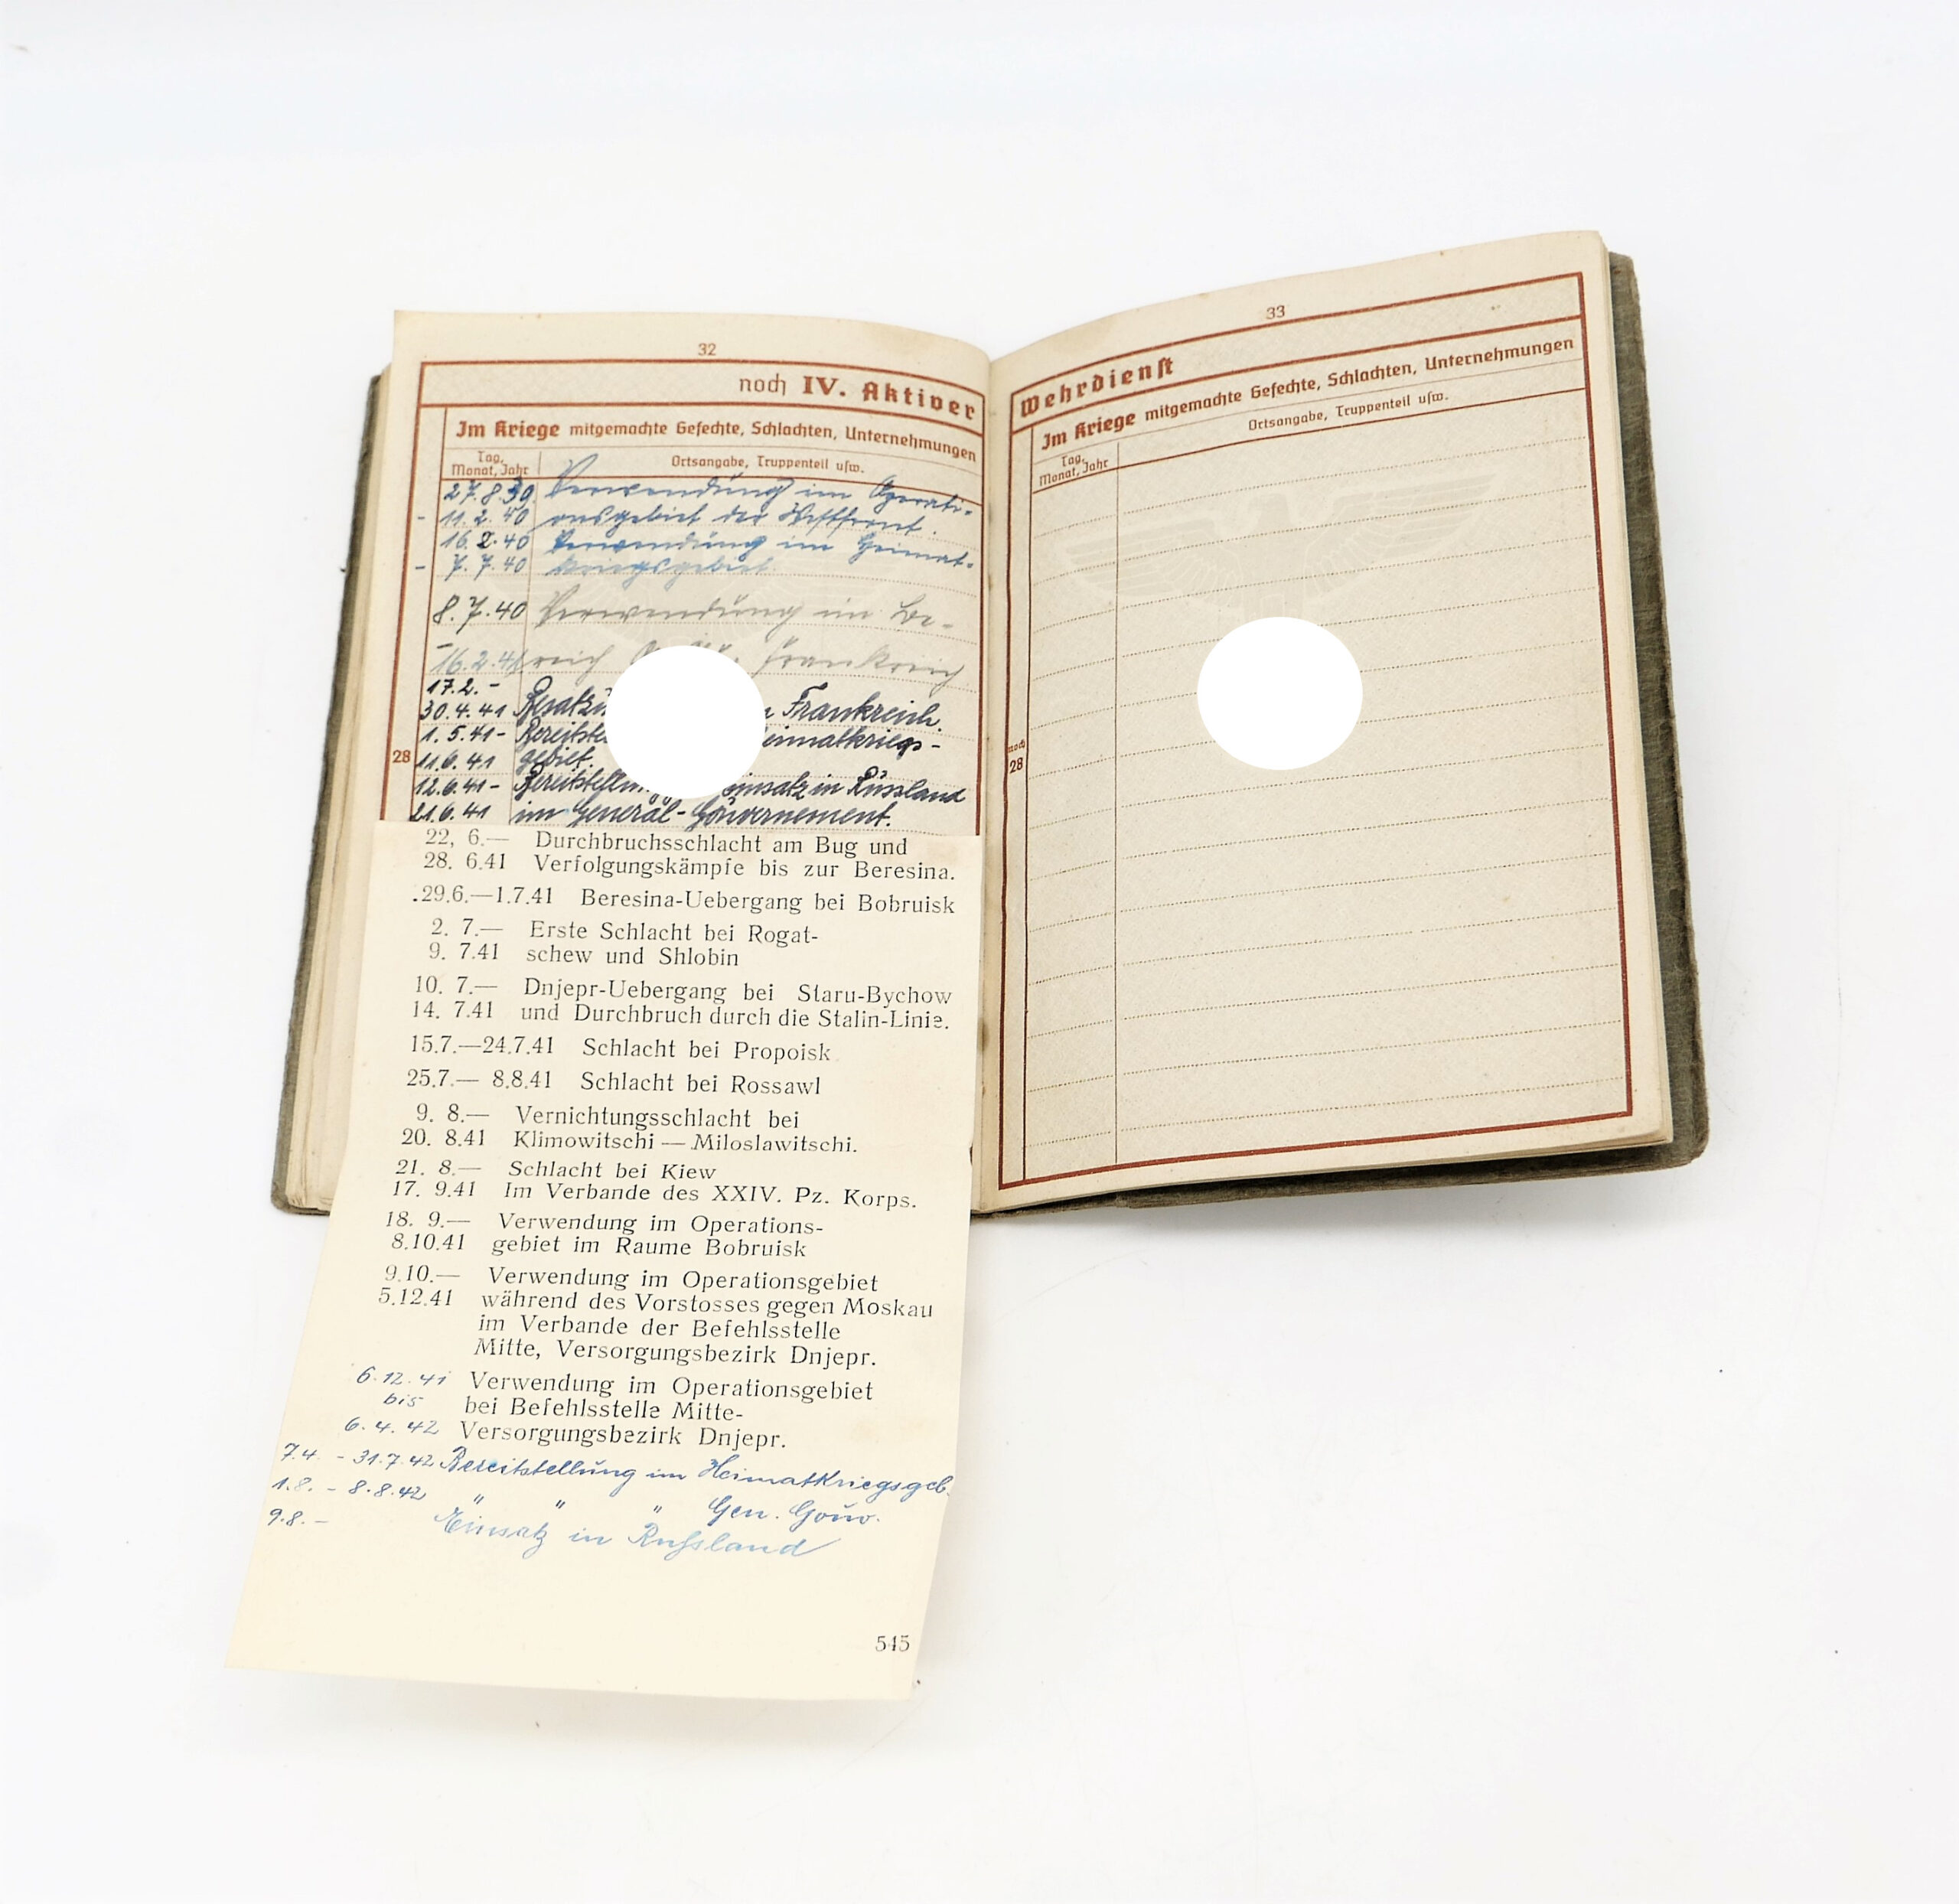 32
noch IV. Aktiver
Im Kriege mitgemachte Gefechte, Schlachten, Unternehmungen
Tag, Monat, Jahr
Ortsangabe, Truppenteil usw.
27.8.39 Verwendung im Operati-
- 11.2.40 onsgebiet der Westfront.
16.2.40 Verwendung im Heimat-
- 7.7.40 kriegsgebiet.
8.7.40 Verwendung im Be-
-
16.2.41 reich Frankreich
17.2.-
30.4.41 Frankreich.
1.5.41- eimatkriegs-
28
11.6.41 gebiet.
12.6.41- einsatz in Russland
21.6.41 im General-Gouvernement.
22, 6.— Durchbruchsschlacht am Bug und
28. 6.41 Verfolgungskämpfe bis zur Beresina.
29.6.—1.7.41 Beresina-Uebergang bei Bobruisk
2. 7.— Erste Schlacht bei Rogat-
9. 7.41 schew und Shlobin
10. 7.— Dnjepr-Uebergang bei Staru-Bychow
14. 7.41 und Durchbruch durch die Stalin-Linie.
15.7.—24.7.41 Schlacht bei Propoisk
25.7.— 8.8.41 Schlacht bei Rossawl
9. 8.— Vernichtungsschlacht bei
20. 8.41 Klimowitschi — Miloslawitschi.
21. 8.— Schlacht bei Kiew
17. 9.41 Im Verbande des XXIV. Pz. Korps.
18. 9.— Verwendung im Operations-
8.10.41 gebiet im Raume Bobruisk
9.10.— Verwendung im Operationsgebiet
5.12.41 während des Vorstosses gegen Moskau
im Verbande der Befehlsstelle
Mitte, Versorgungsbezirk Dnjepr.
6.12.41 Verwendung im Operationsgebiet
bis bei Befehlsstelle Mitte-
6.4.42 Versorgungsbezirk Dnjepr.
7.4. - 31.7.42 Bereitstellung im Heimatkriegsgeb.
1.8. - 8.8.42 " " " Gen. Gouv.
9.8.- Einsatz in Russland
545
33
Wehrdienst
Im Kriege mitgemachte Gefechte, Schlachten, Unternehmungen
Tag, Monat, Jahr
Ortsangabe, Truppenteil usw.
noch
28